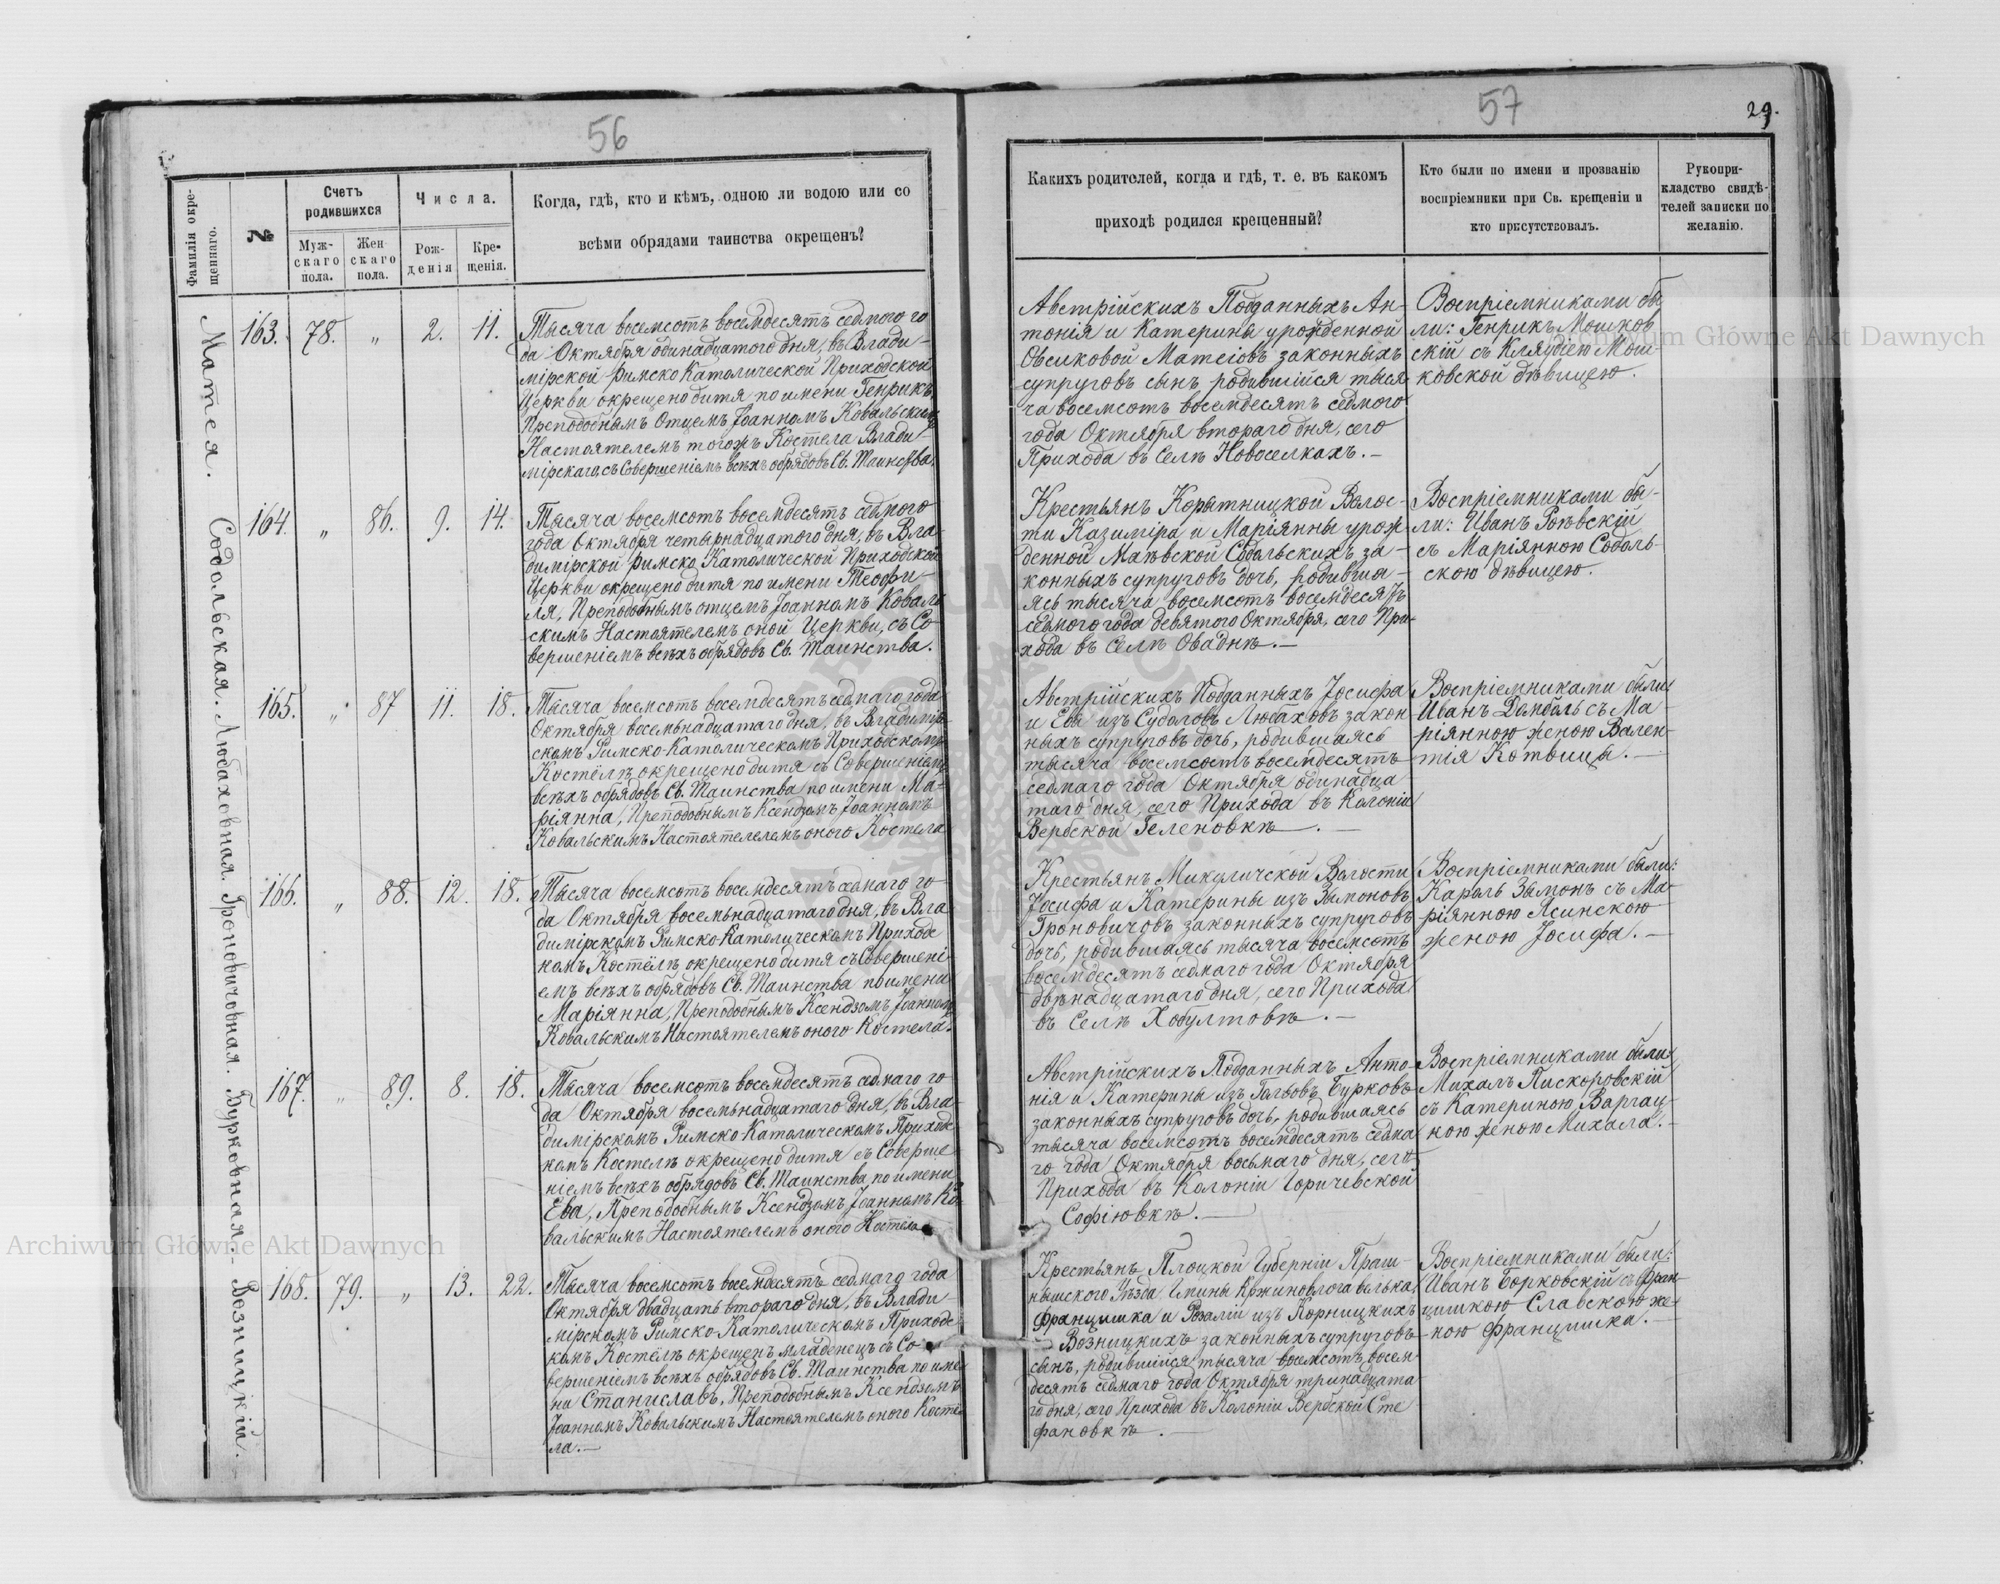 56
Фамилія окре-
щеннаго.
№
Счетъ
родившихся
Муж-
скаго
пола.
Жен-
скаго
пола.
Числа.
Рож-
денія
Кре-
щенія.
Когда, гдѣ, кто и кѣмъ, одною ли водою или со
всѣми обрядами таинства окрещенъ?
Матея.
163. 78. „ 2. 11.
Тысяча восемсотъ восемдесятъ седмого го
да Октября одинадцатого дня, въ Влади-
мірской Римско Католической Приходской
Церкви окрещено дитя по имени Генрикъ
Преподобнымъ Отцемъ Іоанномъ Ковальскимъ
Настоятелемъ тогожъ Костела Влади-
мірскаго, съ Совершеніемъ всѣхъ обрядовъ Св. Таинства.
Содольская.
164. „ 86. 9. 14.
Тысяча восемсотъ восемдесятъ седмого
года Октября четырнадцатого дня, въ Вла-
димірской Римско Католической Приходской
Церкви окрещено дитя по имени Теофи-
ля, Преподобнымъ отцемъ Іоанномъ Коваль
скимъ Настоятелемъ оной Церкви, съ Со-
вершеніемъ всѣхъ обрядовъ Св. Таинства.
Любаховная.
165. „ 87 11. 18.
Тысяча восемсотъ восемдесятъ седмаго года
Октября восемьнадцатаго дня, въ Владимір-
скомъ Римско-Католическомъ Приходскомъ
Костёлѣ окрещено дитя съ Совершеніемъ
всѣхъ обрядовъ Св. Таинства по имени Ма-
ріянна, Преподобнымъ Ксендзомъ Іоанномъ
Ковальскимъ Настоятелемъ оного Костела
Гроновичовная.
166. „ 88. 12. 18.
Тысяча восемсотъ восемдесятъ седмаго го-
да Октября восемьнадцатаго дня, въ Вла
димірскомъ Римско-Католическомъ Приход
номъ Костёлѣ окрещено дитя съ Совершені-
емъ всѣхъ обрядовъ Св. Таинства по имени
Маріянна, Преподобнымъ Ксендзомъ Іоанномъ
Ковальскимъ Настоятелемъ оного Костела.
Бурковная.
167. „ 89. 8. 18.
Тысяча восемсотъ восемдесятъ седмаго го-
да Октября восемьнадцатаго дня, въ Вла-
димірскомъ Римско-Католическомъ Приход-
номъ Костелѣ окрещено дитя съ Соверше
ніемъ всѣхъ обрядовъ Св. Таинства, по имени
Ева, Преподобнымъ Ксендзомъ Іоанномъ Ко-
вальскимъ Настоятелемъ оного Костела
Возницкій.
168. 79. „ 13. 22.
Тысяча восемсотъ восемдесятъ седмаго года
Октября двадцать втораго дня, въ Влади-
мірскомъ Римско-Католическомъ Приходс
комъ Костёлѣ окрещенъ младенецъ съ Со-
вершеніемъ всѣхъ обрядовъ Св. Таинства по име
ни Станиславъ, Преподобнымъ Ксендзомъ
Іоанномъ Ковальскимъ Настоятелемъ оного Косте
ла.—
57
29.
Какихъ родителей, когда и гдѣ, т. е. въ какомъ
приходѣ родился крещенный?
Кто были по имени и прозванію
воспріемники при Св. крещеніи и
кто присутствовалъ.
Рукопри-
кладство свидѣ-
телей записки по
желанію.
Австрійскихъ Подданныхъ Ан-
тонія и Катерины урожденной
Овсиковой Матеіовъ законныхъ
супруговъ сынъ, родившійся тыся
ча восемсотъ восемдесятъ седмого
года Октября втораго дня, сего
Прихода въ Селѣ Новоселкахъ.—
Воспріемниками бы
ли: Генрикъ Мошков
скій съ Клявдіею Мош-
ковской дѣвицею.
Крестьянъ Корытницкой Волос-
ти Казиміра и Маріянны урож
денной Маѣвской Содольскихъ за-
конныхъ супруговъ дочь, родивша-
ясь тысяча восемсотъ восемдесятъ
седмого года девятого Октября, сего При-
хода въ Селѣ Оваднѣ.—
Воспріемниками бы-
ли: Иванъ Роѣвскій
съ Маріянною Содоль-
скою дѣвицею.
Австрійскихъ Подданныхъ Іосифа
и Евы изъ Судоловъ Любаховъ закон
ныхъ супруговъ дочь, родившаясь
тысяча восемсотъ восемдесятъ
седмаго года Октября одинадца
таго дня, сего Прихода въ Колоніи
Вербской Геленовкѣ.—
Воспріемниками были
Иванъ Дембель съ Ма-
ріянною женою Вален-
тія Котвицы.—
Крестьянъ Микуличской Волости
Іосифа и Катерины изъ Зымоновъ
Гроновичовъ законныхъ супруговъ
дочь, родившаясь тысяча восемсотъ
восемдесятъ седмаго года Октября
двѣнадцатаго дня, сего Прихода
въ Селѣ Хобултовѣ.—
Воспріемниками были:
Кароль Зымонъ съ Ма-
ріянною Ясинскою
женою Іосифа.—
Австрійскихъ Подданныхъ Анто-
нія и Катерины изъ Голъбовъ Бурковъ
законныхъ супруговъ дочь, родившаясь
тысяча восемсотъ восемдесятъ седма
го года Октября восьмаго дня, сего
Прихода въ Колоніи Горичевской
Софіювкѣ.—
Воспріемниками были
Михалъ Пискоровскій
съ Катериною Варгац-
кою женою Михала.—
Крестьянъ Плоцкой Губерніи Праш-
нышского Уѣзда Гмины Кржиновлога велька
Францишка и Розаліи изъ Корницкихъ
Возницкихъ законныхъ супруговъ
сынъ, родившійся тысяча восемсотъ восем
десятъ седмаго года Октября тринадцата
го дня, сего Прихода въ Колоніи Вербской Сте
фановкѣ.—
Воспріемниками были:
Иванъ Борковскій съ Фран-
цишкою Славскою же-
ною Францишка.—
Archiwum Główne Akt Dawnych
Archiwum Główne Akt Dawnych